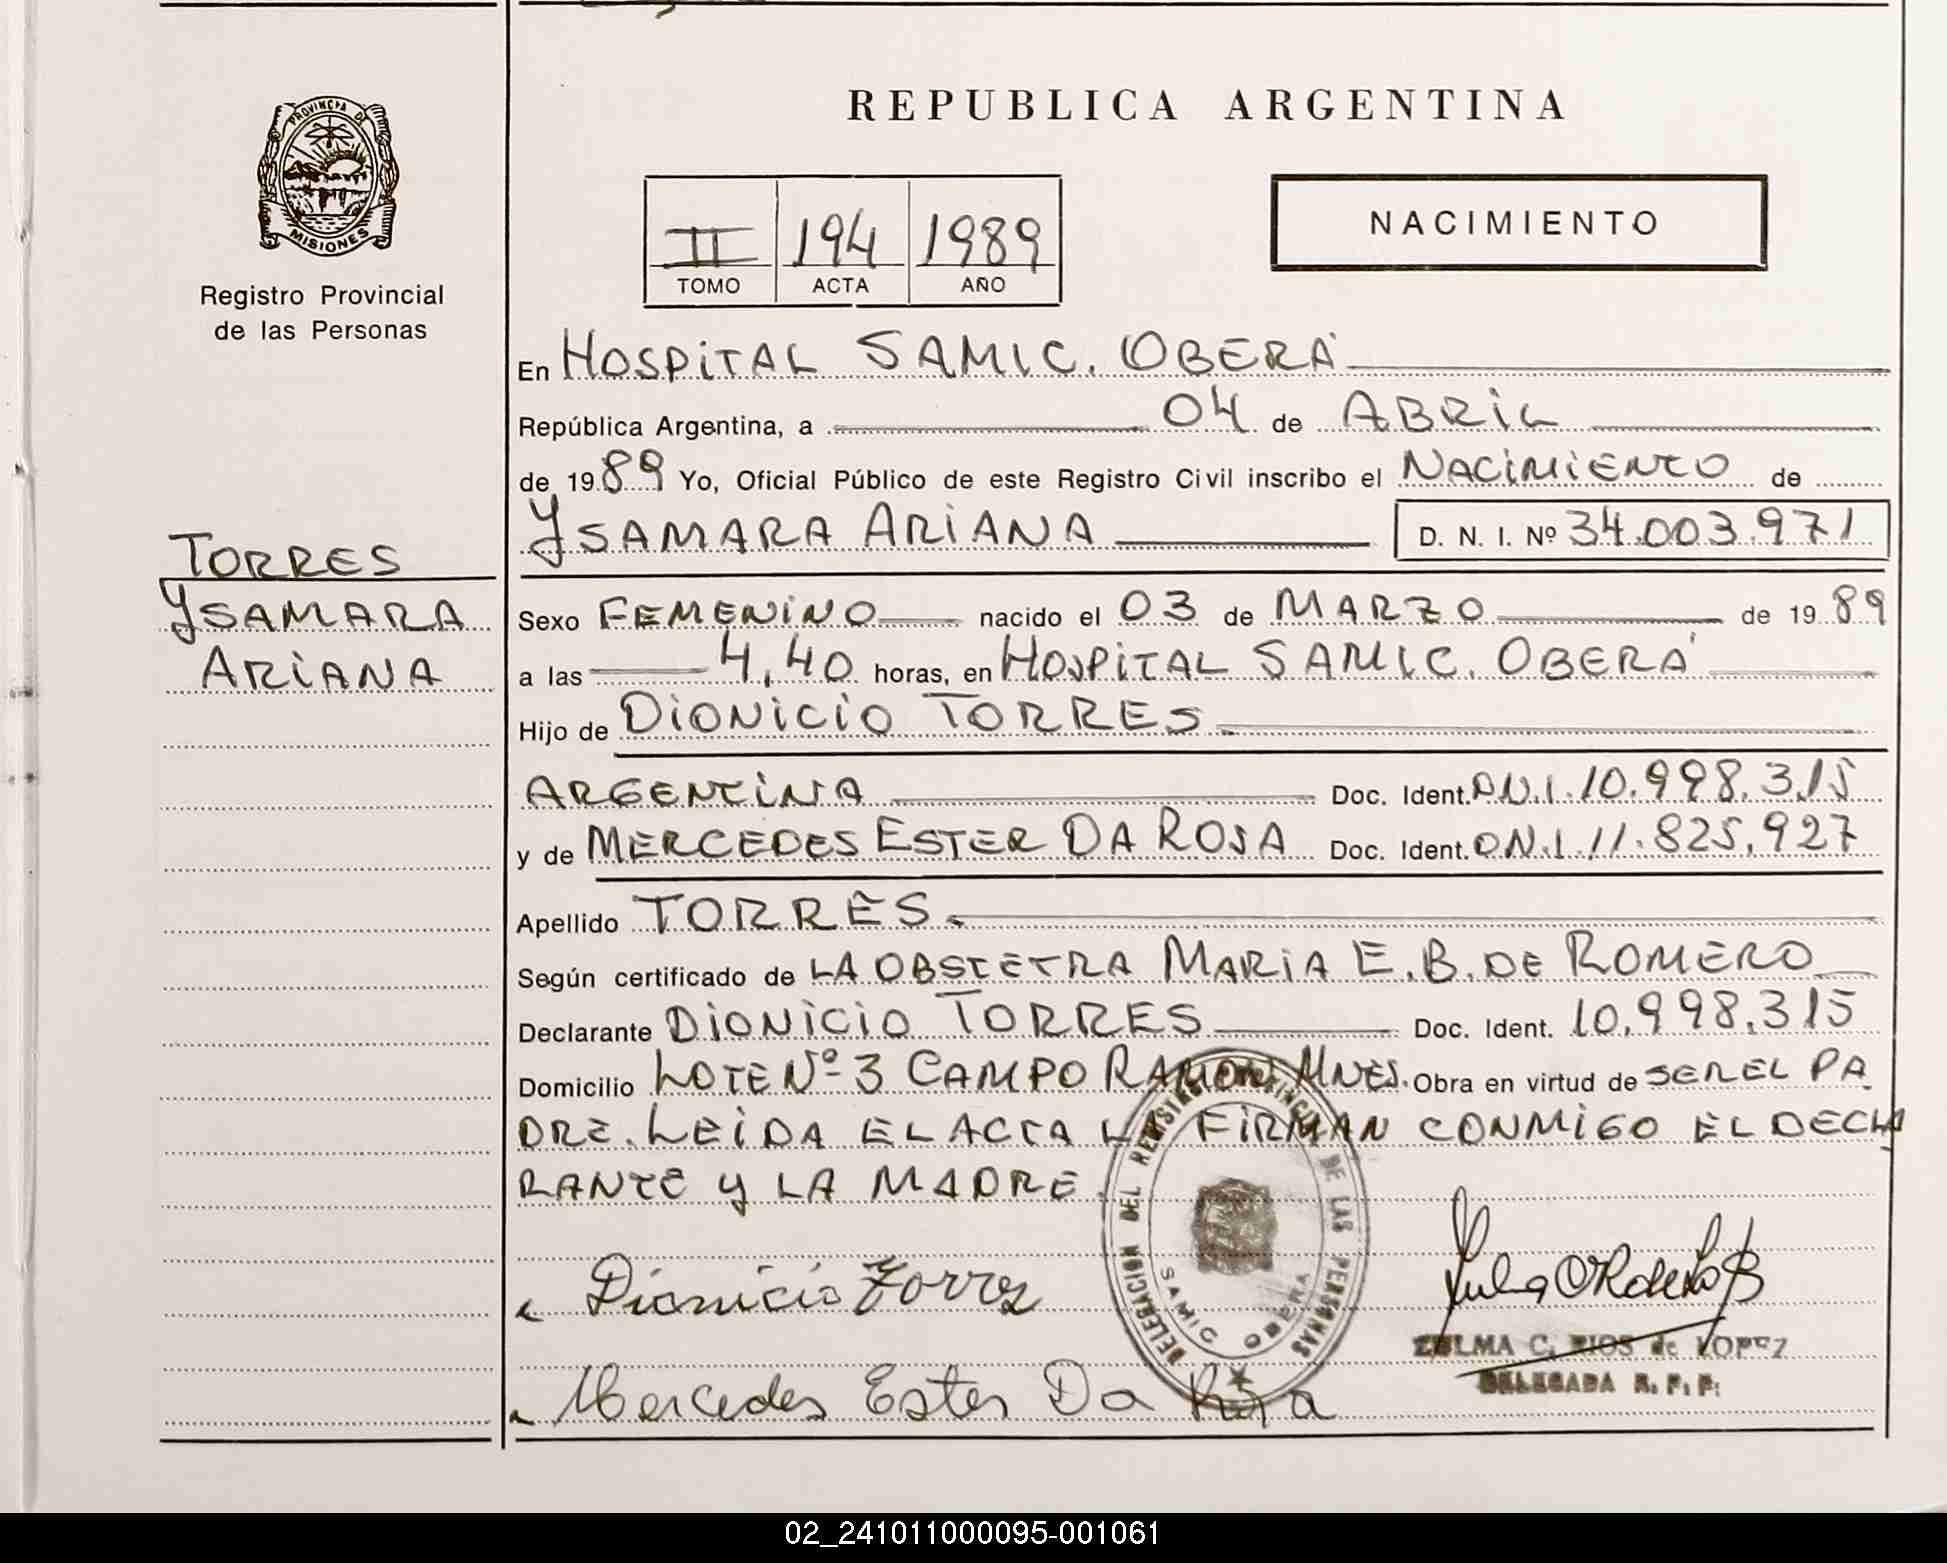 REPUBLICA ARGENTINA
PROVINCIA DE
MISIONES
Registro Provincial
de las Personas
II 194 1989
TOMO ACTA AÑO
NACIMIENTO
En HOSPITAL SAMIC. OBERÁ
República Argentina, a 04 de ABRIL
de 1989 Yo, Oficial Público de este Registro Civil inscribo el NACIMIENTO de
YSAMARA ARIANA D. N. I. Nº 34.003.971
TORRES
YSAMARA
ARIANA
Sexo FEMENINO nacido el 03 de MARZO de 1989
a las 4,40 horas, en HOSPITAL SAMIC. OBERÁ
Hijo de DIONICIO TORRES
ARGENTINA Doc. Ident. D.N.I. 10.998.315
y de MERCEDES ESTER DA ROSA Doc. Ident. D.N.I. 11.825.927
Apellido TORRES
Según certificado de LA OBSTETRA MARIA E. B. DE ROMERO
Declarante DIONICIO TORRES Doc. Ident. 10.998.315
Domicilio LOTE Nº 3 CAMPO RAMON MNES. Obra en virtud de SER EL PA
DRE. LEIDA EL ACTA LA FIRMAN CONMIGO EL DECLA
RANTE Y LA MADRE.
DELEGACION DEL REGISTRO PROVINCIAL DE LAS PERSONAS
SAMIC OBERA
Dionicio Torres
Mercedes Ester Da Rosa
ZULMA C. RIOS de LOPEZ
DELEGADA R. P. P.
02_241011000095-001061